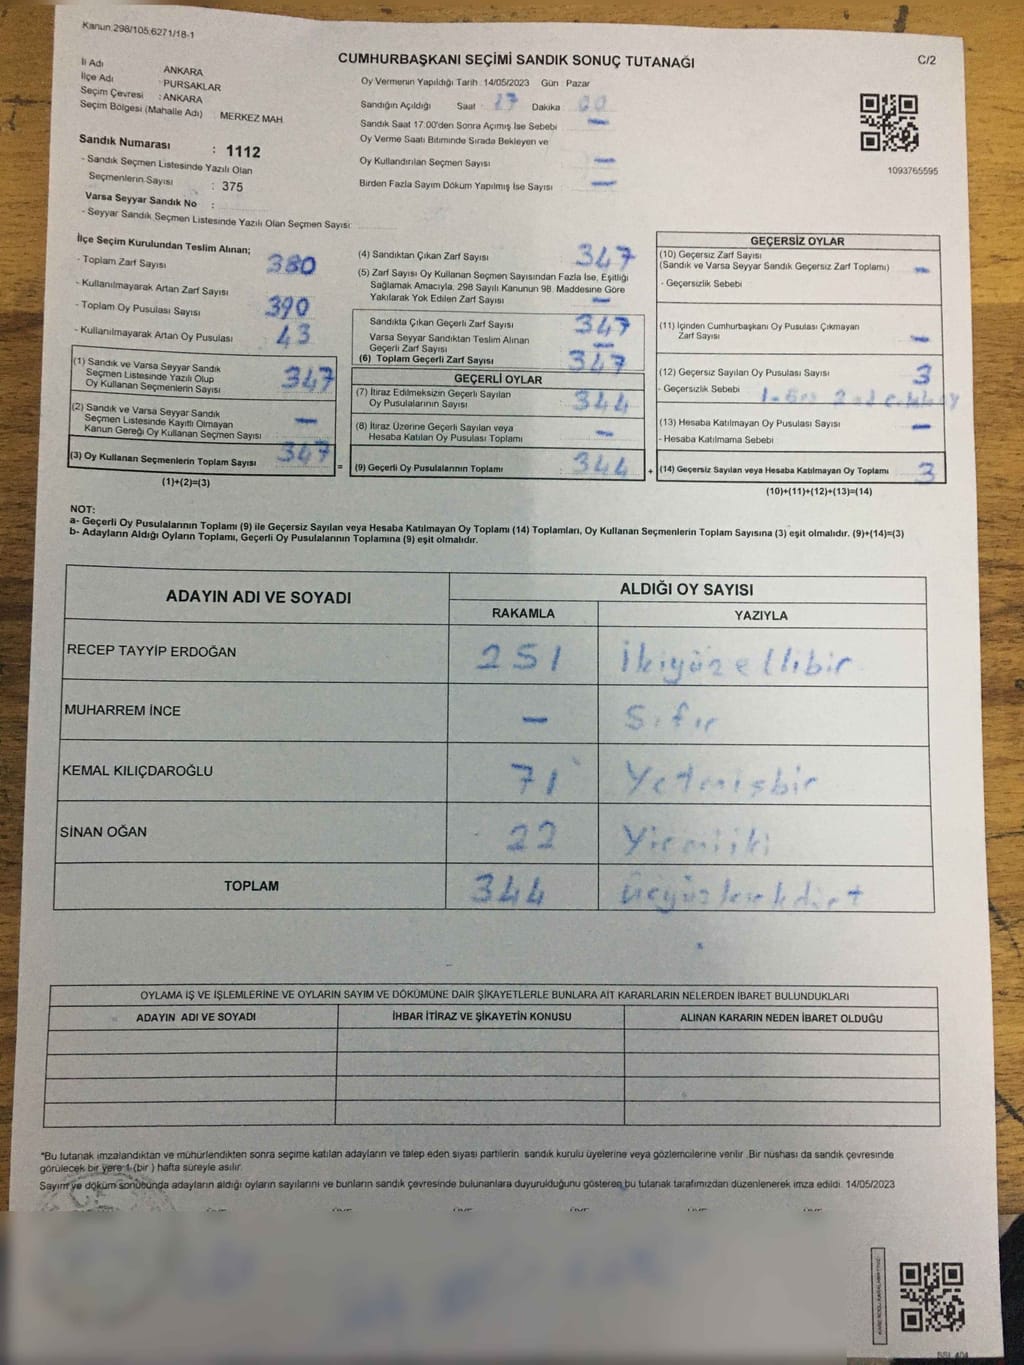 Kanun:298/105;6271/18-1
CUMHURBAŞKANI SEÇİMİ SANDIK SONUÇ TUTANAĞI
C/2
İl Adı ANKARA
İlçe Adı : PURSAKLAR
Seçim Çevresi : ANKARA
Seçim Bölgesi (Mahalle Adı) MERKEZ MAH.
Sandık Numarası : 1112
- Sandık Seçmen Listesinde Yazılı Olan
Seçmenlerin Sayısı : 375
Varsa Seyyar Sandık No :
- Seyyar Sandık Seçmen Listesinde Yazılı Olan Seçmen Sayısı:
Oy Vermenin Yapıldığı Tarih :14/05/2023 Gün : Pazar
Sandığın Açıldığı Saat : 17 Dakika 00
Sandık Saat 17:00'den Sonra Açımış İse Sebebi —
Oy Verme Saati Bitiminde Sırada Bekleyen ve
Oy Kullandırılan Seçmen Sayısı —
Birden Fazla Sayım Döküm Yapılmış İse Sayısı —
1093765595
İlçe Seçim Kurulundan Teslim Alınan;
- Toplam Zarf Sayısı 380
- Kullanılmayarak Artan Zarf Sayısı
- Toplam Oy Pusulası Sayısı 390
- Kullanılmayarak Artan Oy Pusulası 43
(1) Sandık ve Varsa Seyyar Sandık
Seçmen Listesinde Yazılı Olup
Oy Kullanan Seçmenlerin Sayısı 347
(2) Sandık ve Varsa Seyyar Sandık
Seçmen Listesinde Kayıtlı Olmayan
Kanun Gereği Oy Kullanan Seçmen Sayısı —
(3) Oy Kullanan Seçmenlerin Toplam Sayısı 347
(1)+(2)=(3)
=
(4) Sandıktan Çıkan Zarf Sayısı 347
(5) Zarf Sayısı Oy Kullanan Seçmen Sayısından Fazla İse, Eşitliği
Sağlamak Amacıyla, 298 Sayılı Kanunun 98. Maddesine Göre
Yakılarak Yok Edilen Zarf Sayısı —
Sandıkta Çıkan Geçerli Zarf Sayısı 347
Varsa Seyyar Sandıktan Teslim Alınan
Geçerli Zarf Sayısı —
(6) Toplam Geçerli Zarf Sayısı 347
GEÇERLİ OYLAR
(7) İtiraz Edilmeksizin Geçerli Sayılan
Oy Pusulalarının Sayısı 344
(8) İtiraz Üzerine Geçerli Sayılan veya
Hesaba Katılan Oy Pusulası Toplamı —
(9) Geçerli Oy Pusulalarının Toplamı 344
+
GEÇERSİZ OYLAR
(10) Geçersiz Zarf Sayısı
(Sandık ve Varsa Seyyar Sandık Geçersiz Zarf Toplamı) —
- Geçersizlik Sebebi
(11) İçinden Cumhurbaşkanı Oy Pusulası Çıkmayan
Zarf Sayısı —
(12) Geçersiz Sayılan Oy Pusulası Sayısı 3
- Geçersizlik Sebebi
(13) Hesaba Katılmayan Oy Pusulası Sayısı —
- Hesaba Katılmama Sebebi
(14) Geçersiz Sayılan veya Hesaba Katılmayan Oy Toplamı 3
(10)+(11)+(12)+(13)=(14)
NOT:
a- Geçerli Oy Pusulalarının Toplamı (9) ile Geçersiz Sayılan veya Hesaba Katılmayan Oy Toplamı (14) Toplamları, Oy Kullanan Seçmenlerin Toplam Sayısına (3) eşit olmalıdır. (9)+(14)=(3)
b- Adayların Aldığı Oyların Toplamı, Geçerli Oy Pusulalarının Toplamına (9) eşit olmalıdır.
ADAYIN ADI VE SOYADI ALDIĞI OY SAYISI
RAKAMLA YAZIYLA
RECEP TAYYİP ERDOĞAN 251 İkiyüzellibir
MUHARREM İNCE — Sıfır
KEMAL KILIÇDAROĞLU 71 Yetmişbir
SİNAN OĞAN 22 Yirmiiki
TOPLAM 344
OYLAMA İŞ VE İŞLEMLERİNE VE OYLARIN SAYIM VE DÖKÜMÜNE DAİR ŞİKAYETLERLE BUNLARA AİT KARARLARIN NELERDEN İBARET BULUNDUKLARI
ADAYIN ADI VE SOYADI İHBAR İTİRAZ VE ŞİKAYETİN KONUSU ALINAN KARARIN NEDEN İBARET OLDUĞU
*Bu tutanak imzalandıktan ve mühürlendikten sonra seçime katılan adayların ve talep eden siyasi partilerin sandık kurulu üyelerine veya gözlemcilerine verilir. Bir nüshası da sandık çevresinde
görülecek bir yere 1 (bir) hafta süreyle asılır.
Sayım ve döküm sonucunda adayların aldığı oyların sayılarını ve bunların sandık çevresinde bulunanlara duyurulduğunu gösteren bu tutanak tarafımızdan düzenlenerek imza edildi. 14/05/2023